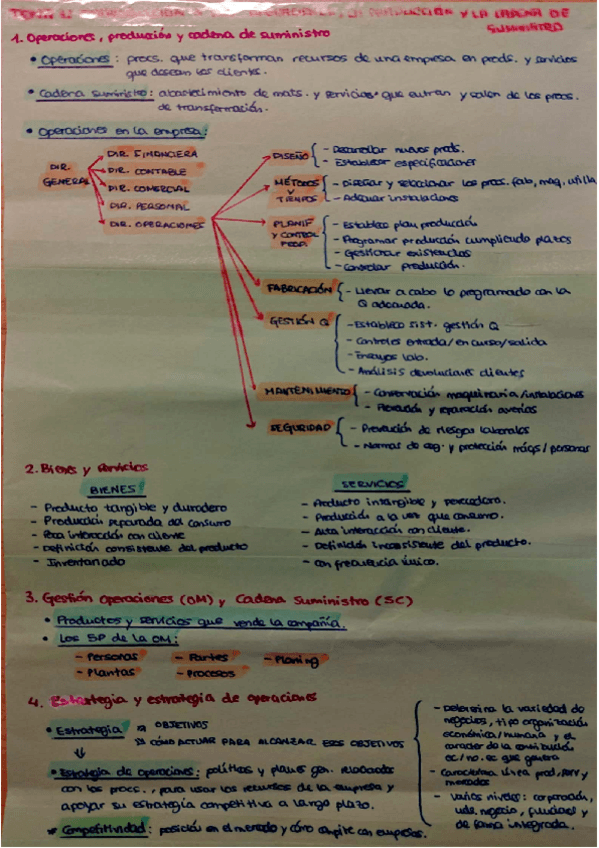 TEMA 1: LA PRODUCCIÓN Y LA CADENA DE
SUMINISTRO
1. Operaciones, producción y cadena de suministro
• Operaciones: procs. que transforman recursos de una empresa en prods. y servicios
que desean los clientes.
• Cadena suministro: abastecimiento de mats. y servicios que entran y salen de los procs.
de transformación.
• Operaciones en la empresa:
DIR. GENERAL
DIR. FINANCIERA
DIR. CONTABLE
DIR. COMERCIAL
DIR. PERSONAL
DIR. OPERACIONES
DISEÑO
- Desarrollar nuevos prods.
- Establecer especificaciones
MÉTODOS Y TIEMPOS
- Diseñar y seleccionar los procs. fab, maq, utilla
- Adecuar instalaciones
PLANIF Y CONTROL PROD.
- Establece plan producción
- Programar producción cumpliendo plazos
- Gestionar existencias
- Controlar producción.
FABRICACIÓN
- Llevar a cabo lo programado con la
Q adecuada.
GESTIÓN Q
- Establece sist. gestión Q
- Controles entrada/en curso/salida
- Ensayos lab.
- Análisis devoluciones clientes
MANTENIMIENTO
- Conservación maquinaria/instalaciones
- y reparación averías
SEGURIDAD
- Prevención de riesgos laborales
- Normas de seg. y protección máqs/personas
2. Bienes y servicios
BIENES
- Producto tangible y duradero
- Producción separada del consumo
- Poca interacción con cliente
- Definición consistente del producto
- Inventariado
SERVICIOS
- Producto intangible y perecedero.
- Producción a la vez que consumo.
- Alta interacción con cliente.
- Definición inconsistente del producto.
- Con frecuencia único.
3. Gestión Operaciones (OM) y Cadena Suministro (SC)
• Productos y servicios que vende la compañía.
• Los 5P de la OM:
- Personas - Partes - Planing
- Plantas - Procesos
4. Estrategia y estrategia de operaciones
• Estrategia OBJETIVOS
CÓMO ACTUAR PARA ALCANZAR ESOS OBJETIVOS
• Estrategia de operaciones: políticas y planes gen. relacionados
con los procs., para usar los recursos de la empresa y
apoyar su estrategia competitiva a largo plazo.
* Competitividad: posición en el mercado y cómo compite con empresas.
- Determina la variedad de
negocios, tipo organización
económica/humana y el
carácter de la contribución
ec/no ec que genera
- Caracteriza línea prod, serv y
mercados
- Varios niveles: corporación,
uds. negocio, funcional y
de forma integrada.